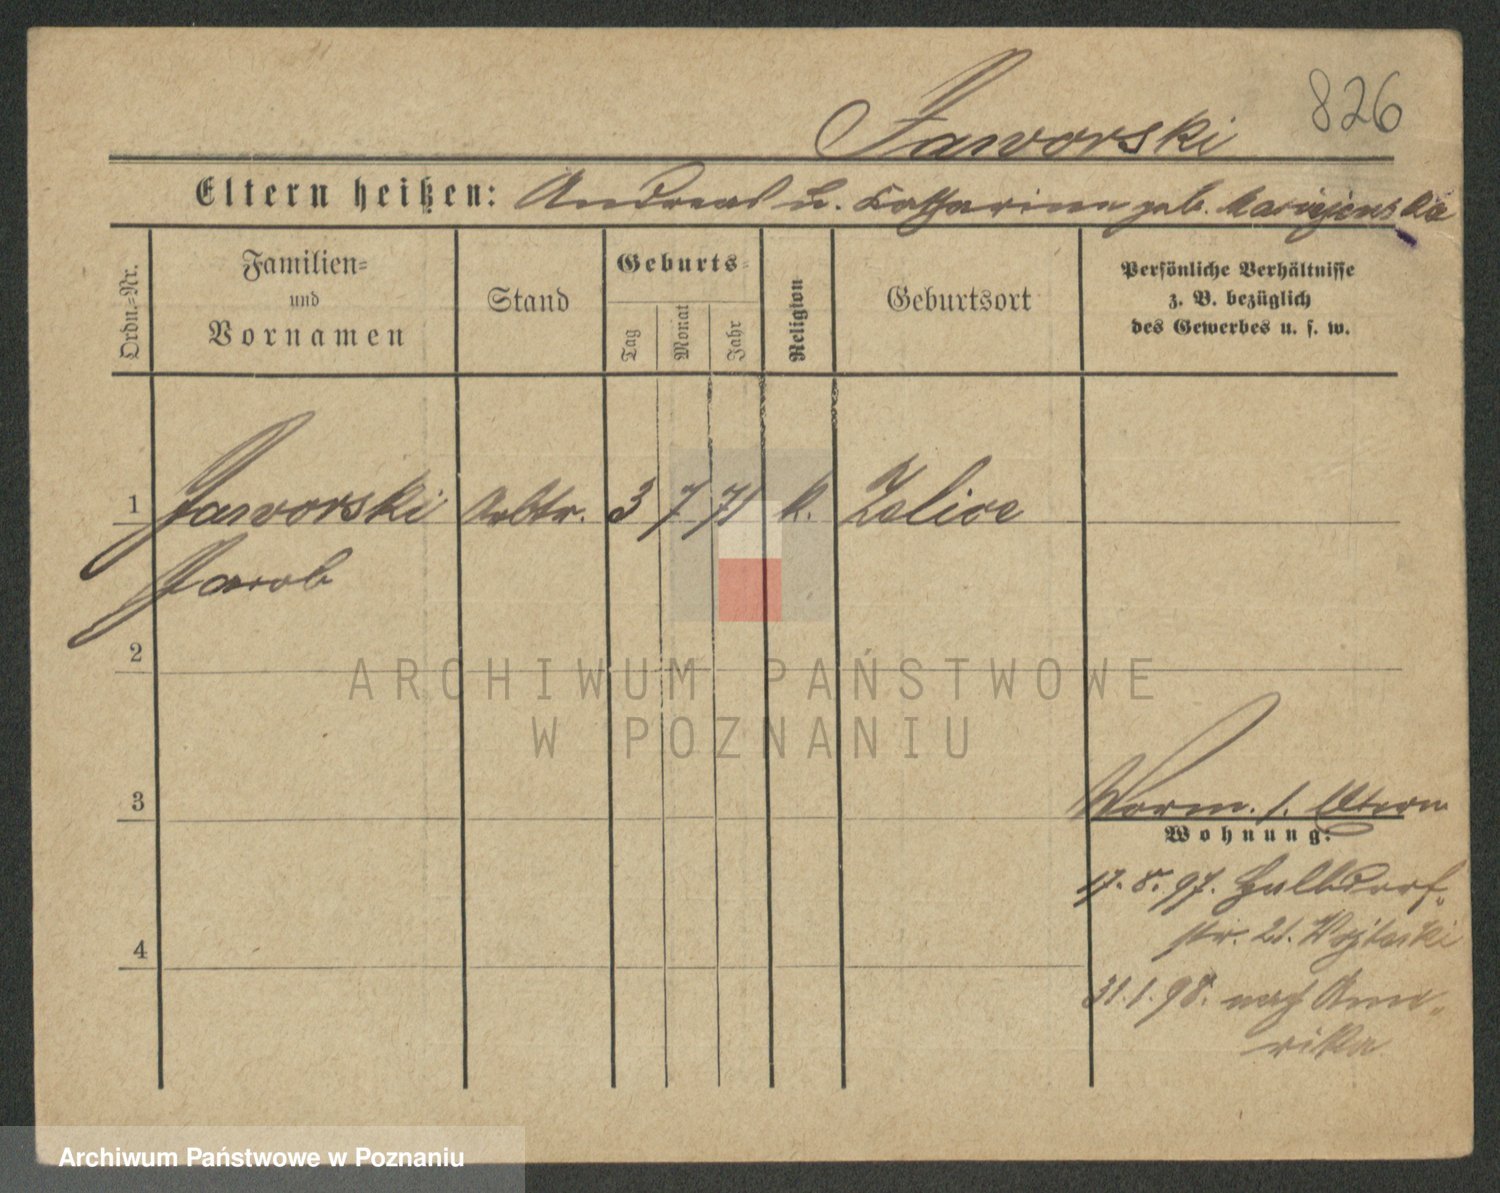 826
Jaworski
Eltern heißen: Andreas u. Katharina geb.
Ordn.=Nr.
Familien=
und
Vornamen
Stand
Geburts=
Tag
Monat
Jahr
Religion
Geburtsort
Persönliche Verhältnisse
z. B. bezüglich
des Gewerbes u. s. w.
1 Jaworski Arbtr. 3 7 71 k. Zalice
Jacob
2
ARCHIWUM PAŃSTWOWE
W POZNANIU
3
Wohnung:
17. 8. 97. Halbdorf=
str. 21.
4
31. 1. 98. nach Ame=
rika
Archiwum Państwowe w Poznaniu